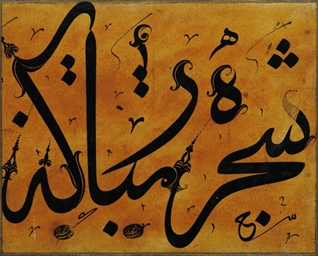 شجرة مباركة